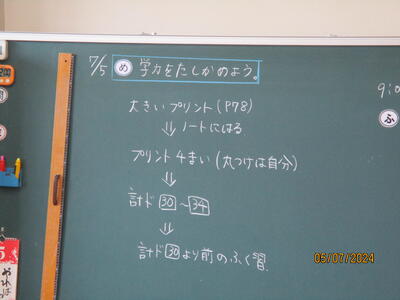 7/5 め 学力をたしかめよう。
大きいプリント(P78)
⇓ ノートにはる
プリント4まい(丸つけは自分)
⇓
計ド30~34
⇓
計ド30より前のふく習
ふ
5
05/07/2024